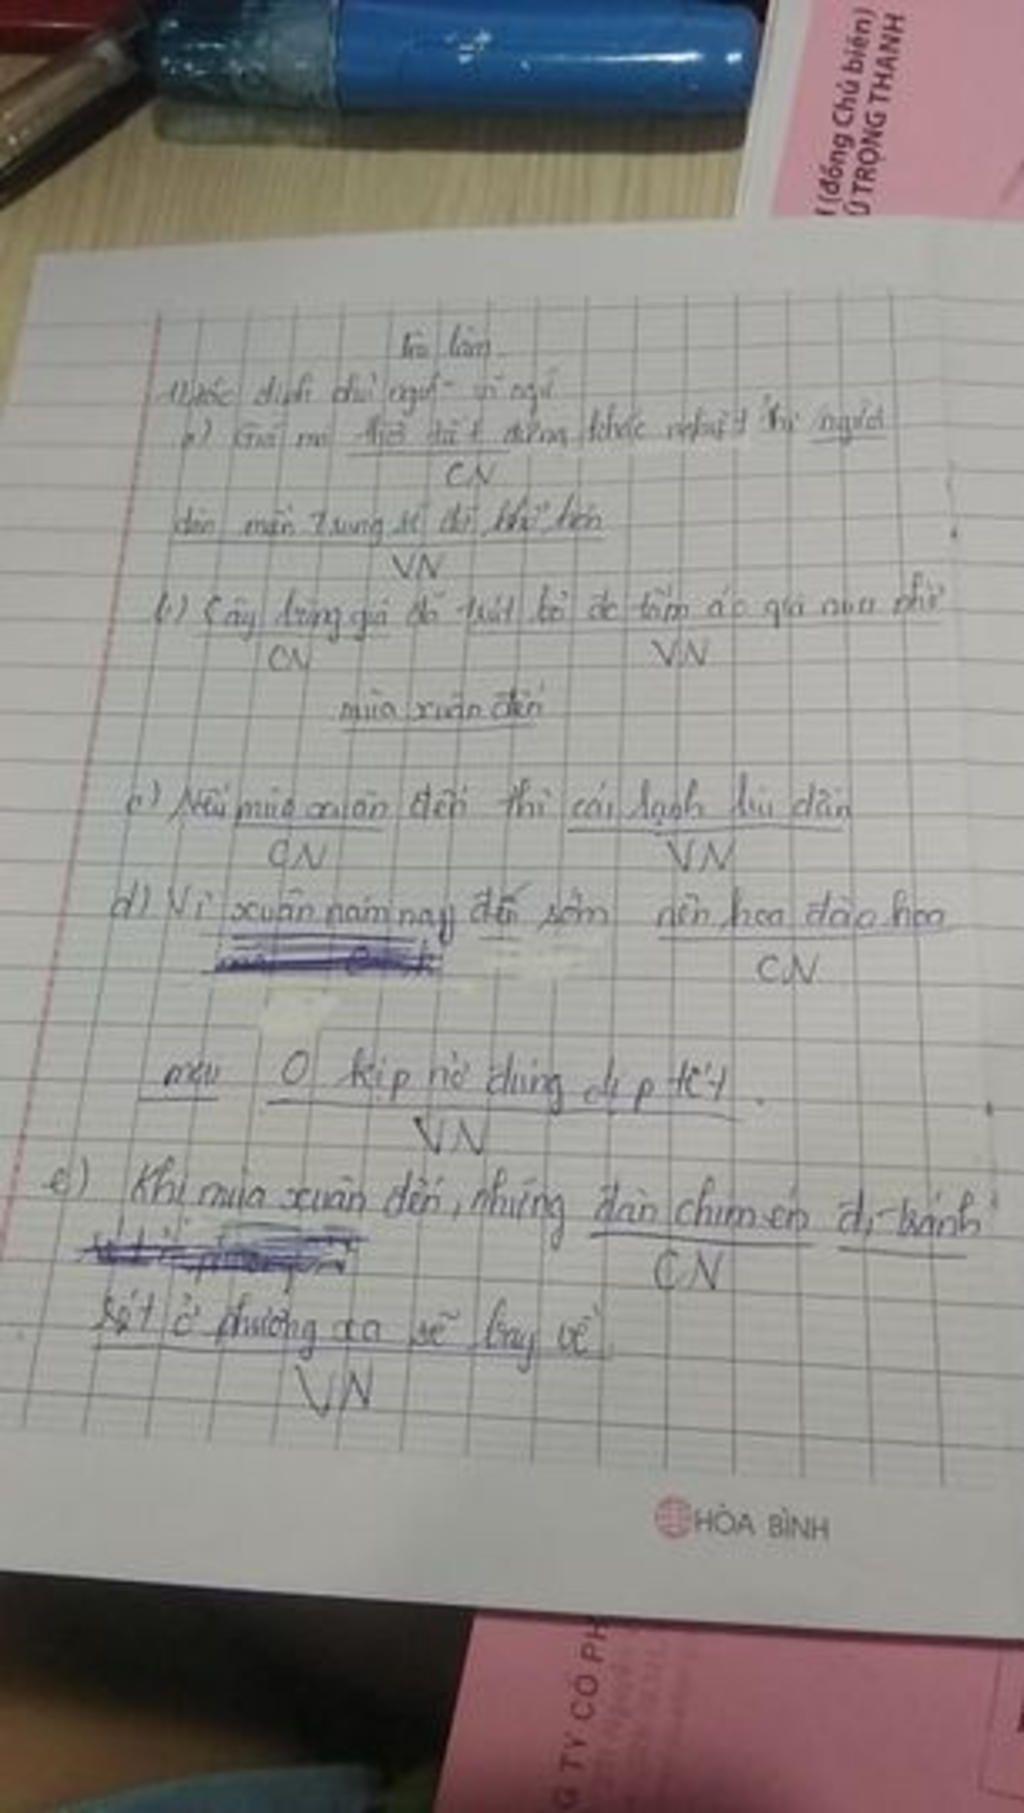 (đồng Chủ biên)
TRỌNG THANH
làm
định chủ ngữ - vị ngữ
a) Giá mà thời tiết đừng khắc nghiệt thì người
CN
dân miền Trung sẽ đỡ khổ hơn
VN
b) Cây bàng già đã trút bỏ đc tấm áo già nua nhờ
CN VN
mùa xuân đến
c) Nếu mùa xuân đến thì cái lạnh lùi dần
CN VN
d) Vì xuân năm nay đến sớm nên hoa đào hoa
CN
mai 0 kịp nở đúng dịp tết.
VN
e) Khi mùa xuân đến, những đàn chim én đi tránh
CN
rét ở phương xa sẽ bay về
VN
HÒA BÌNH
G TY CỔ PH